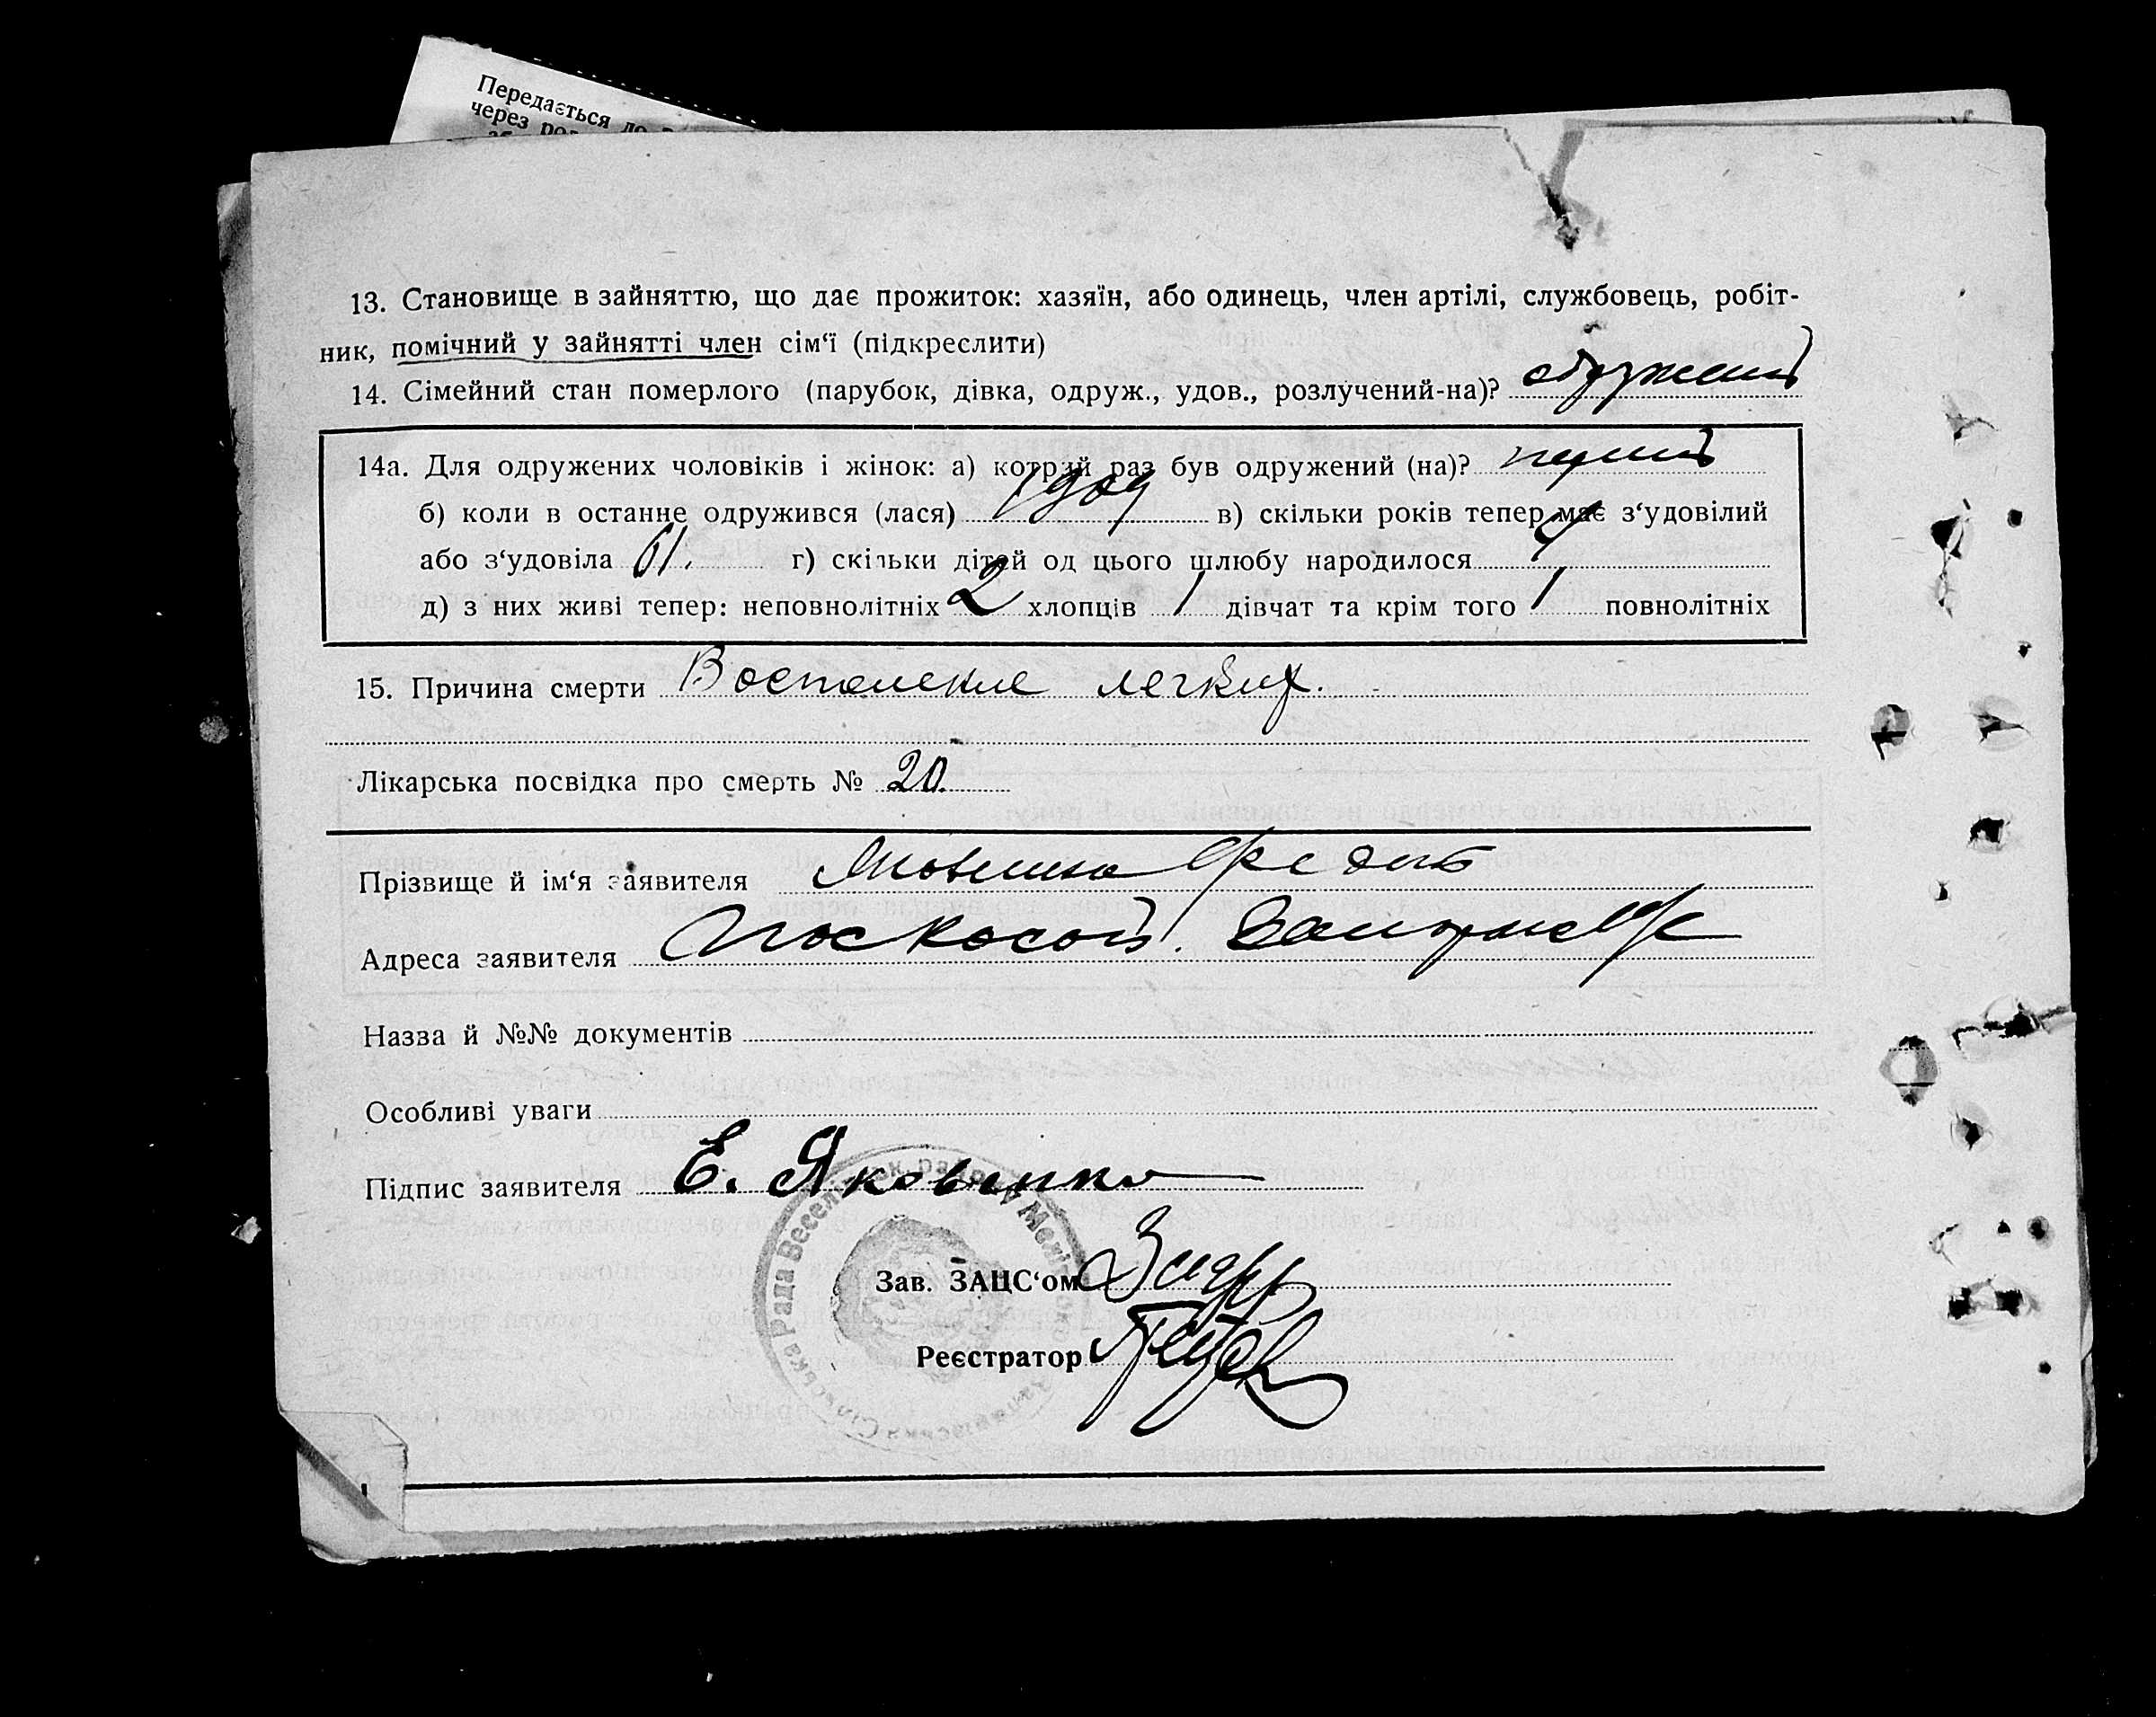 Передається до
через
13. Становище в зайняттю, що дає прожиток: хазяїн, або одинець, член артілі, службовець, робіт-
ник, помічний у зайнятті член сім‘ї (підкреслити)
14. Сімейний стан померлого (парубок, дівка, одруж., удов., розлучений-на)? одружений
14а. Для одружених чоловіків і жінок: а) котрий раз був одружений (на)? перший
б) коли в останнє одружився (лася) 1909 в) скільки років тепер має з‘удовілий
або з‘удовіла 61. г) скільки дітей од цього шлюбу народилося 4
д) з них живі тепер: неповнолітніх 2 хлопців 1 дівчат та крім того 1 повнолітніх
15. Причина смерти Воспаление легких.
Лікарська посвідка про смерть № 20.
Прізвище й ім‘я заявителя
Адреса заявителя
Назва й №№ документів
Особливі уваги
Підпис заявителя Е. Яковенко
Зав. ЗАЦС‘ом
Реєстратор